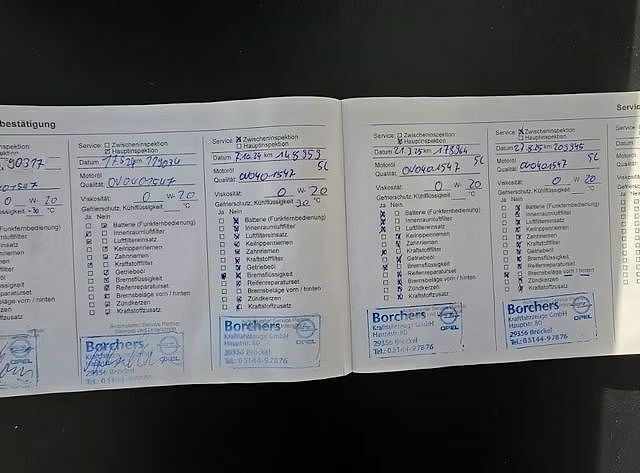 bestätigung
Service
90377
0 W- 20
Service: Zwischeninspektion
Hauptinspektion
Datum km 119034
Motoröl
Qualität: OV0401547
Viskosität: 0 W- 20
Gefrierschutz, Kühlflüssigkeit °C
Ja Nein
Batterie (Funkfernbedienung)
Innenraumluftfilter
Luftfiltereinsatz
Keilrippenriemen
Zahnriemen
Kraftstofffilter
Getriebeöl
Bremsflüssigkeit
Reifenreparaturset
Bremsbeläge vorn / hinten
Zündkerzen
Kraftstoffzusatz
Borchers
29356 Bröckel
Tel.: 05144-97876
OPEL
Service: Zwischeninspektion
Hauptinspektion
Datum 7.10.24 km 148959
Motoröl 5L
Qualität: OV0401547
Viskosität: 0 W- 20
Gefrierschutz, Kühlflüssigkeit °C
Ja Nein
Batterie (Funkfernbedienung)
Innenraumluftfilter
Luftfiltereinsatz
Keilrippenriemen
Zahnriemen
Kraftstofffilter
Getriebeöl
Bremsflüssigkeit
Reifenreparaturset
Bremsbeläge vorn / hinten
Zündkerzen
Kraftstoffzusatz
Borchers
Kraftfahrzeuge GmbH
Hauptstr. 80
29356 Bröckel
Tel.: 05144-97876
OPEL
Service: Zwischeninspektion
Hauptinspektion
Datum 21.3.25 km
Motoröl 5L
Qualität: OV0401547
Viskosität: 0 W- 20
Gefrierschutz, Kühlflüssigkeit °C
Ja Nein
Batterie (Funkfernbedienung)
Innenraumluftfilter
Luftfiltereinsatz
Keilrippenriemen
Zahnriemen
Kraftstofffilter
Getriebeöl
Bremsflüssigkeit
Reifenreparaturset
Bremsbeläge vorn / hinten
Zündkerzen
Kraftstoffzusatz
Borchers
Kraftfahrzeuge GmbH
Hauptstr. 80
29356 Bröckel
Tel.: 05144-97876
OPEL
Service: Zwischeninspektion
Hauptinspektion
Datum 27.8.25 km 203945
Motoröl 5L
Qualität: OV0401547
Viskosität: 0 W- 20
Gefrierschutz, Kühlflüssigkeit °C
Ja Nein
Batterie (Funkfernbedienung)
Innenraumluftfilter
Luftfiltereinsatz
Keilrippenriemen
Zahnriemen
Kraftstofffilter
Getriebeöl
Bremsflüssigkeit
Reifenreparaturset
Bremsbeläge vorn / hinten
Zündkerzen
Kraftstoffzusatz
Borchers
Kraftfahrzeuge GmbH
Hauptstr. 80
29356 Bröckel
Tel.: 05144-97876
OPEL